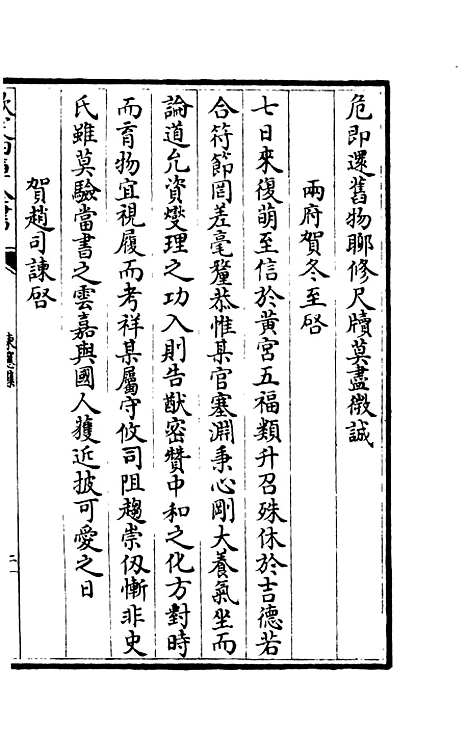 危即還舊物聊修尺牘莫盡微誠
兩府賀冬至啓
七日來復萌至信於黃宮五福類升召殊休於吉德若
合符節罔差毫釐恭惟某官塞淵秉心剛大養氣坐而
論道允資燮理之功入則告猷密贊中和之化方對時
而育物宜視履而考祥某屬守攸司阻趨崇仭慚非史
氏雖莫驗當書之雲嘉與國人獲近披可愛之日
賀趙司諫啓